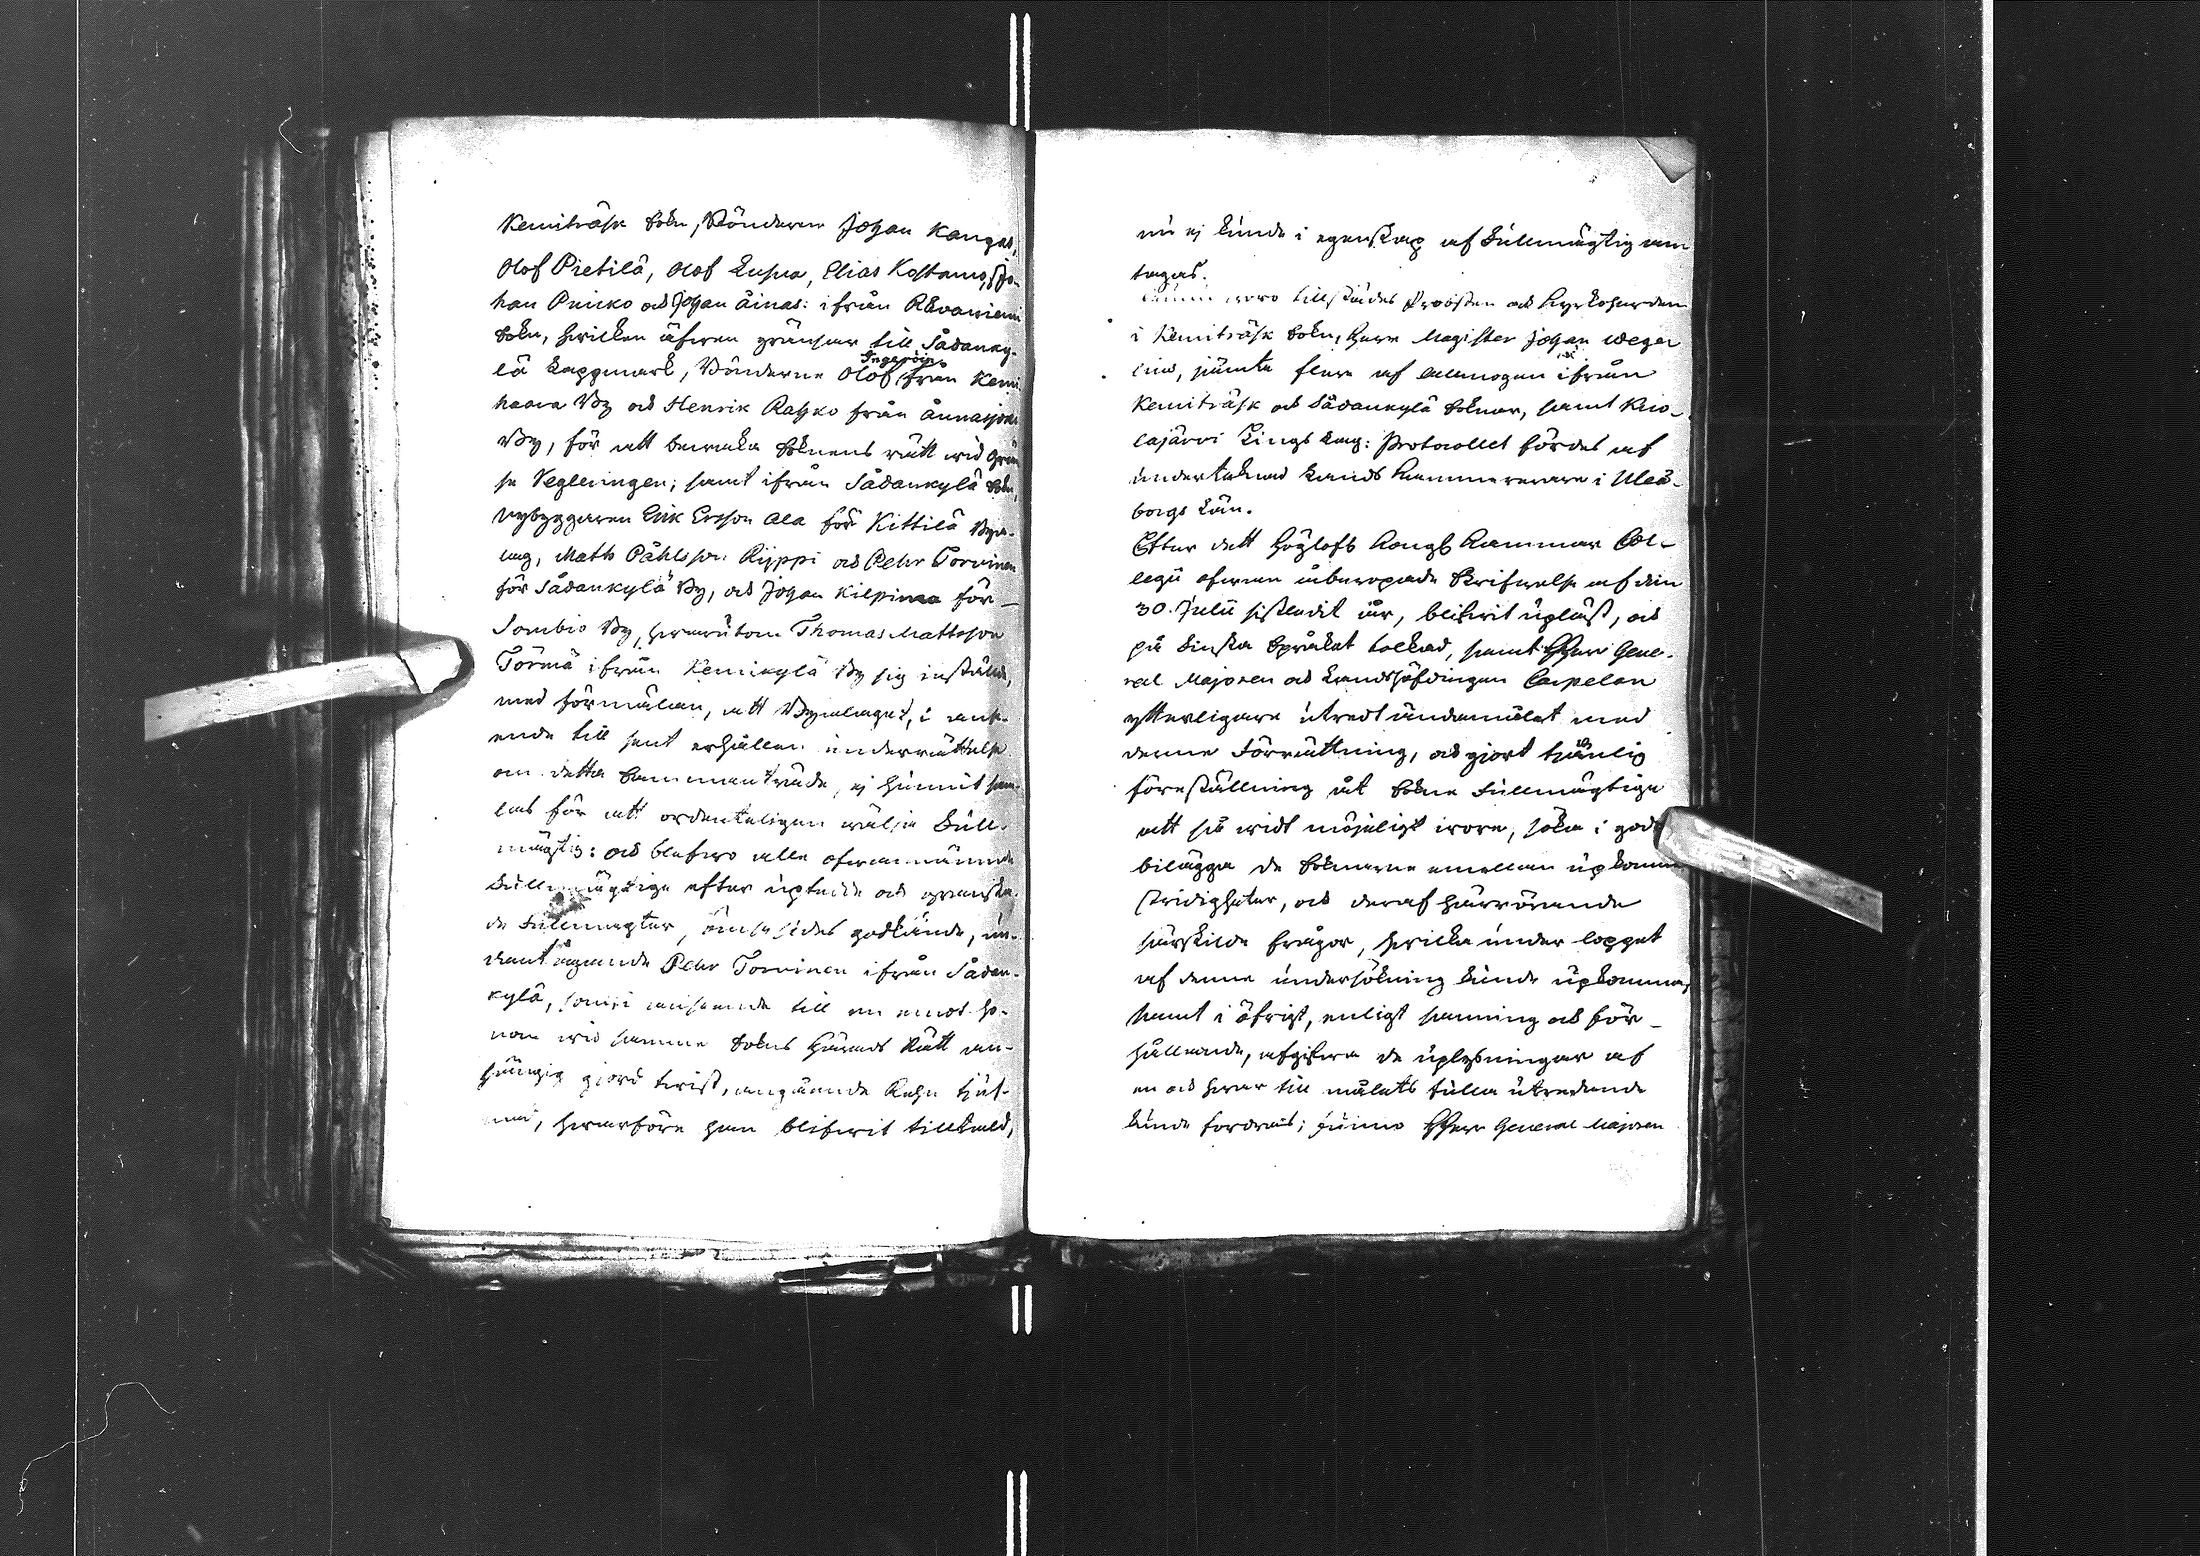 Kemiträsk Sokn, Bönderne Johan Kangas,
Olof Pietilä, Olof Luswa, Elias Kostamo, Jo-
han Pricko och Johan Äinas: ifrån Råvaniemi
Sokn, hwilken äfwen gränsar till Sådanky-
lä Lappmark, Bönderne Olof Ingeröin från Kemi
haara By och Henrik Rahko från
By, för att bewaka Soknens rätt wid Grän
se Regleringen; samt ifrån Sådankylä Sokn
Nybyggaren Erik Ersson Ala för Kittilä Bya-
lag, Math Påhlsson Ryppi och Pehr Torvinen
för Sådankylä By, och Johan Kilpimaa för
Sombio By, hwarutom Thomas Mattsson
Törmä ifrån Kemikylä By sig inställde,
med förmälan, att Byalaget, i anse-
ende till sent erhållen underrättelse
om detta Sammanträde, ej hunnit sam-
las för att ordenteligen wälja Full-
mägtig: och blefwo alle ofwannämnde
Fullmägtige efter upteedde och granska-
de Fullmagter, ömsesides godkände, un-
dantagande Pehr Torvinen ifrån Sådan-
kylä, som i anseende till en emot ho-
nom wid samme Sokns Härads Rätt an-
hängig giord twist, angående Rehn tjuf-
nad, hwarföre han blifwit tilltald,
nu ej kunde i egenskap af Fullmägtig an
tagas.
woro tillstädes Probsten och Kyrkoherden
i Kemiträsk Sokn, Herr Magister Johan Wege
lius, jämte flere af Allmogen ifrån
Kemiträsk och Sådankylä Soknar, samt Kuo-
lajärvi Tings Lag: Protocollet fördes af
undertecknad Lands Kammererare i Uleå-
borgs Län.
Efter dett Höglofl Kongl Kammar Col-
legii ofwan åberopade Skrifwelse af den
30. Julii sistledit år, blifwit upläst, och
på Finska Språket tolkad, samt HHerr Gene-
ral Majoren och Landshöfdingen Carpelan
ytterligare utredt ändamålet med
denne Förrättning, och gjort tjenlig
föreställning åt Sokne Fullmägtige
att så widt möjeligt wore, söka i godo
bilägga de Soknarne emellan upkomne
stridigheter, och deraf härrörande
särskilde frågor, hwilka under loppet
af denne undersökning kunde upkomma,
samt i öfrigt, enligt sanning och för-
hållande, afgifwa de uplysningar af
en och hwar till målets fulla utredande
kunde fordras; funno HHerr General Majoren